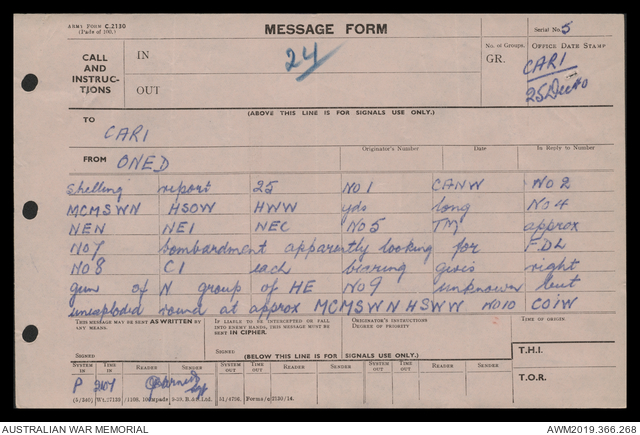 ARMY FORM C.2130
(Pads of 100.)
MESSAGE FORM
Serial No. 5
CALL AND INSTRUC-TIONS
IN
24
No. of Groups.
GR.
OFFICE DATE STAMP
CARI
25 Dec 40
OUT
(ABOVE THIS LINE IS FOR SIGNALS USE ONLY.)
TO
CARI
FROM
ONED
Originator's Number
Date
In Reply to Number
Shelling report 25 No 1 CANW No 2
MCMSWN HSOW HWW yds long No 4
NEN NEI NEC No 5 TM approx
No 7 bombardment apparently looking for FDL
No 8 C1 each bearing given right
gun of N group of HE No 9 unknown but
unexploded round at approx MCMSWN HSWW No 10 COIW
THIS MESSAGE MAY BE SENT AS WRITTEN BY ANY MEANS.
IF LIABLE TO BE INTERCEPTED OR FALL INTO ENEMY HANDS, THIS MESSAGE MUST BE SENT IN CIPHER.
ORIGINATOR'S INSTRUCTIONS
DEGREE OF PRIORITY
TIME OF ORIGIN
SIGNED
SIGNED
(BELOW THIS LINE IS FOR SIGNALS USE ONLY.)
T.H.I.
SYSTEM IN
TIME IN
READER
SENDER
SYSTEM OUT
TIME OUT
READER
SENDER
SYSTEM OUT
TIME OUT
READER
SENDER
T.O.R.
P
AUSTRALIAN WAR MEMORIAL
AWM2019.366.268